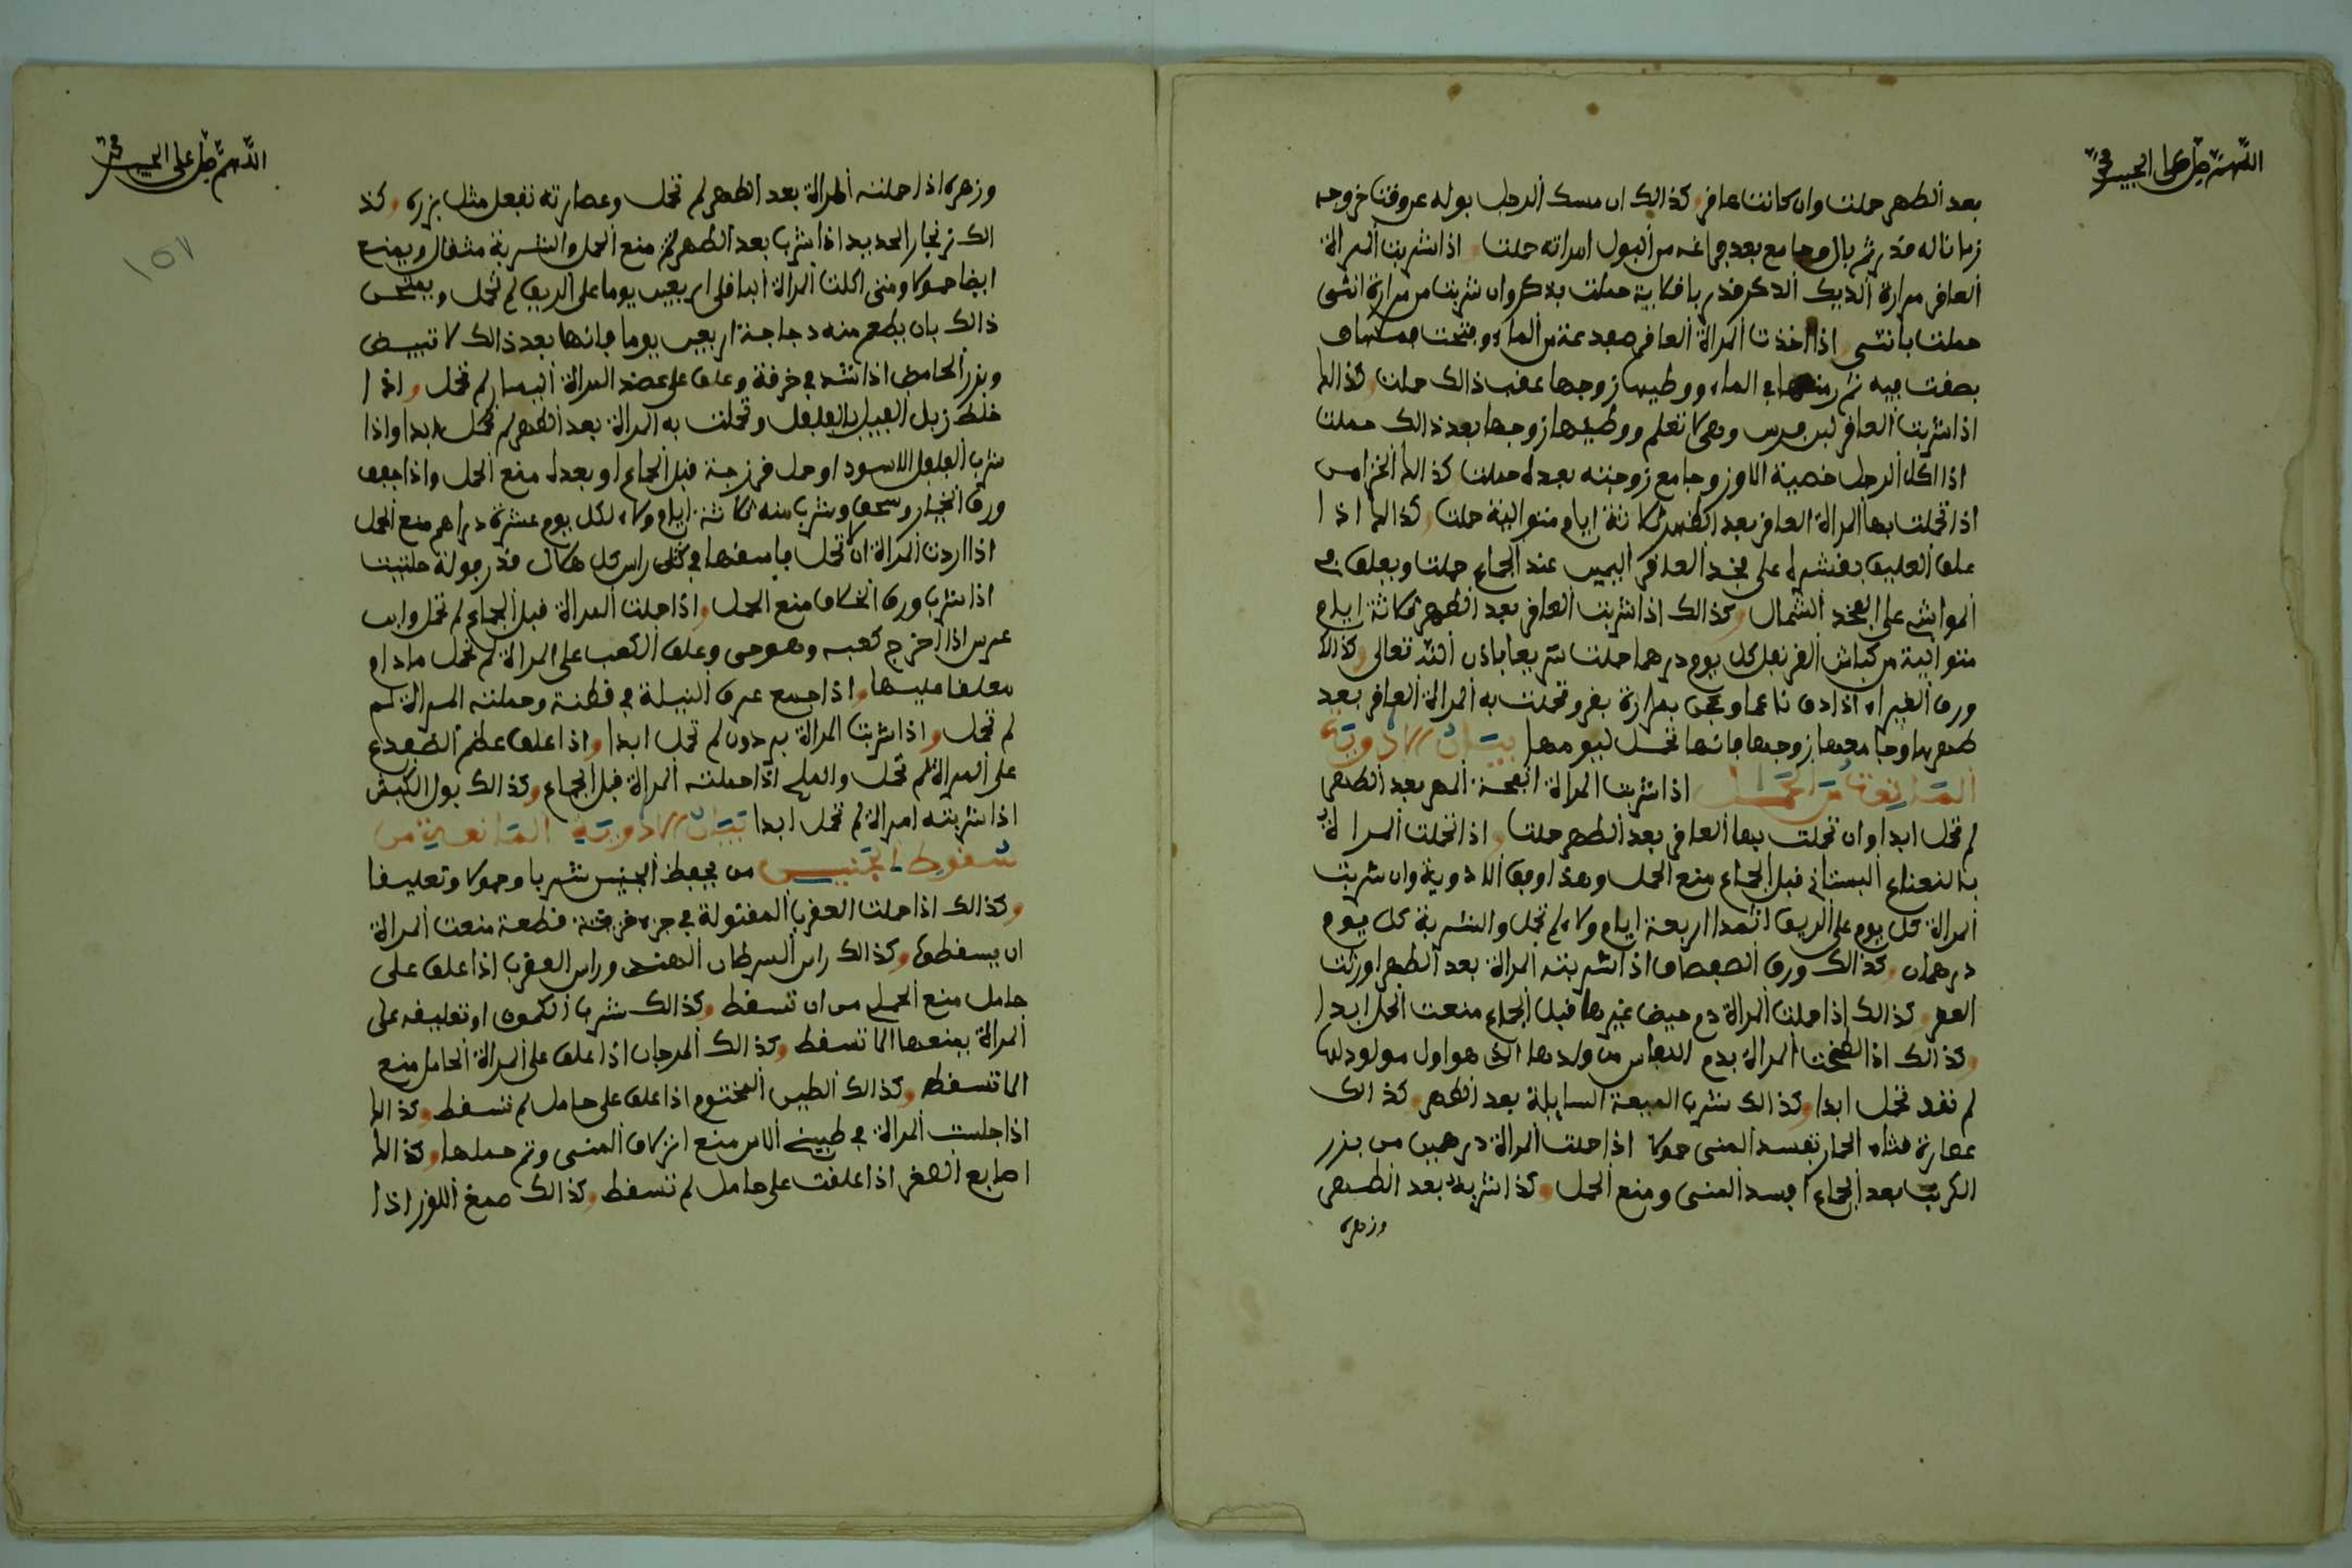 اللهم صل على الحبيب محمد
بعد الطهر حملت وان كانت عافر كذالك ان مسك الرجل بوله عروقت خروجه
زمانا له قدر ثم بال وجامع بعد فراغه من البول امراته حملت اذا شربت المراة
العافر مرارة الديك الذكر قدر باقلاية حملت بذكر وان شربت من مرارة انثى
حملت بانثى اذا اخذت المراة العافر ضفدعة من الماء وفتحت فمها و
بصقت فيه ثم رمتها في الماء ووطيها زوجها عقب ذالك حملت كذالك
اذا شربت العافر لبن فرس وهي لا تعلم ووطيها زوجها بعد ذالك حملت
اذا اكل الرجل خصية الاوز وجامع زوجته بعده حملت كذالك الخزامى
اذا تحملت بها المراة العافر بعد الطهر ثلاثة ايام متوالية حملت كذالك اذا
علق العليق بقشره على فخذ العافر اليمين عند الجماع حملت ويعلق في
المواشي على الفخذ الشمال وكذالك اذا شربت العافر بعد الطهر ثلاثة ايام
متوالية من كباش القرنفل كل يوم درهما حملت سريعا باذن الله تعالى وكذالك
ورق الغبراء اذا دق ناعما وعجن بمرارة بقر وتحملت به المراة العافر بعد
طهرها وجامعها زوجها فانها تحمل ليومها بيان الادوية
المانعة من الحمل اذا شربت المراة انفحة المهر بعد الطهر
لم تحمل ابدا وان تحملت بها العافر بعد الطهر حملت واذا تحملت المراة
بالنعناع البستاني قبل الجماع منع الحمل وهذا اوفق الادوية وان شربت
المراة كل يوم على الريق اثمدا اربعة ايام ولاء لم تحمل والشربة كل يوم
درهمان وكذالك ورق الصفصاف اذا شربته المراة بعد الطهر اورثت
العقر وكذالك اذا حملت المراة دم حيض غيرها قبل الجماع منعت الحمل ابدا
وكذالك اذا لطخت المراة بدم النفاس من ولدها الذي هو اول مولود لها
لم تعد تحمل ابدا وكذالك شرب الميعة السايلة بعد الطهر وكذالك
عصارة قثاء الحمار تفسد المني حمولا اذا حملت المراة درهمين من بزر
الكرنب بعد الجماع افسد المني ومنع الحمل وكذا شربه بعد الطهر
وزهره
اللهم صل على الحبيب محمد
١٥٧
وزهره اذا حملته المراة بعد الطهر لم تحمل وعصارته تفعل مثل بزره وكذ
الك زنجار الحديد اذا شرب بعد الطهر منع الحمل والشربة مثقال ويمنع
ايضا حمولا ومتى اكلت المراة الباقلى اربعين يوما على الريق لم تحمل ويمتحن
ذالك بان يطعم منه دجاجة اربعين يوما فانها بعد ذالك لا تبيض
وبزر الحامض اذا شد في خرقة وعلق على عضد المراة اليسار لم تحمل واذا
خلط زبل الفيل بالفلفل وتحملت به المراة بعد الطهر لم تحمل ابدا واذا
شرب الفلفل الاسود او حمل فرزجة قبل الجماع او بعده منع الحمل واذا جفف
ورق الخيار وسحق وشرب منه ثلاثة ايام ولاء لكل يوم عشرة دراهم منع الحمل
اذا اردت المراة ان لا تحمل فاسقها في كل راس كل هلال قدر فولة حلتيت
اذا شرب ورق الخلاف منع الحمل واذا حملت المراة قبل الجماع لم تحمل وابن
عرس اذا اخرج كعبه وهو حي وعلق الكعب على المراة لم تحمل ما دام
معلقا عليها واذا جمع عرق البغلة في قطنة وحملته المراة لم
لم تحمل واذا شربت المراة برذون لم تحمل ابدا واذا علق عظم الضفدع
على المراة لم تحمل والملح اذا حملته المراة قبل الجماع وكذالك بول الكبش
اذا شربته امراة لم تحمل ابدا بيان الادوية المانعة من
سقوط الجنين مما يحفظ الجنين شربا وحمولا وتعليقا
وكذالك اذا حملت العقرب المقتولة في جزء خرقة قطعة منعت المراة
ان يسقطها وكذالك راس السرطان الهندي وراس العقرب اذا علق على
حامل منع الحمل من ان تسقط وكذالك شرب الكمون او تعليقه على
المراة يمنعها الا تسقط وكذالك المرجان اذا علق على المراة الحامل منع
الا تسقط وكذالك الطين المختوم اذا علق على حامل لم تسقط وكذالك
اذا جلست المراة في طبيخ الاس منع انزلاق المني وتم حملها وكذالك
اصابع الصفر اذا علقت على حامل لم تسقط وكذالك صمغ اللوز اذا